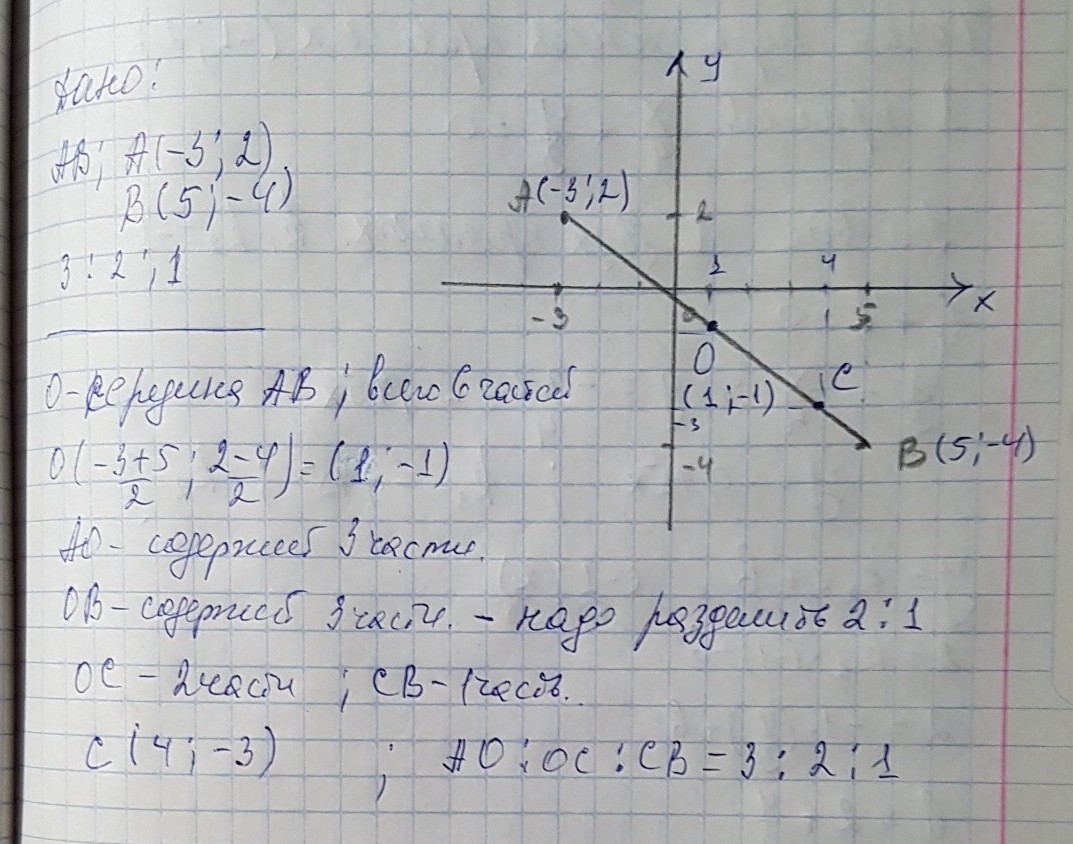 Дано:
AB; A(-3; 2)
B(5; -4)
3 : 2 ; 1
y
A(-3; 2)
2
1
4
-3
5
x
O
(1; -1)
C
-3
-4
B(5; -4)
O - середина AB ; всего 6 частей
O(-3+5/2 ; 2-4/2) = (1; -1)
AO - содержит 3 части.
OB - содержит 3 части. - надо разделить 2 : 1
OC - 2 части ; CB - 1 часть.
C(4; -3) ; AO : OC : CB = 3 : 2 : 1